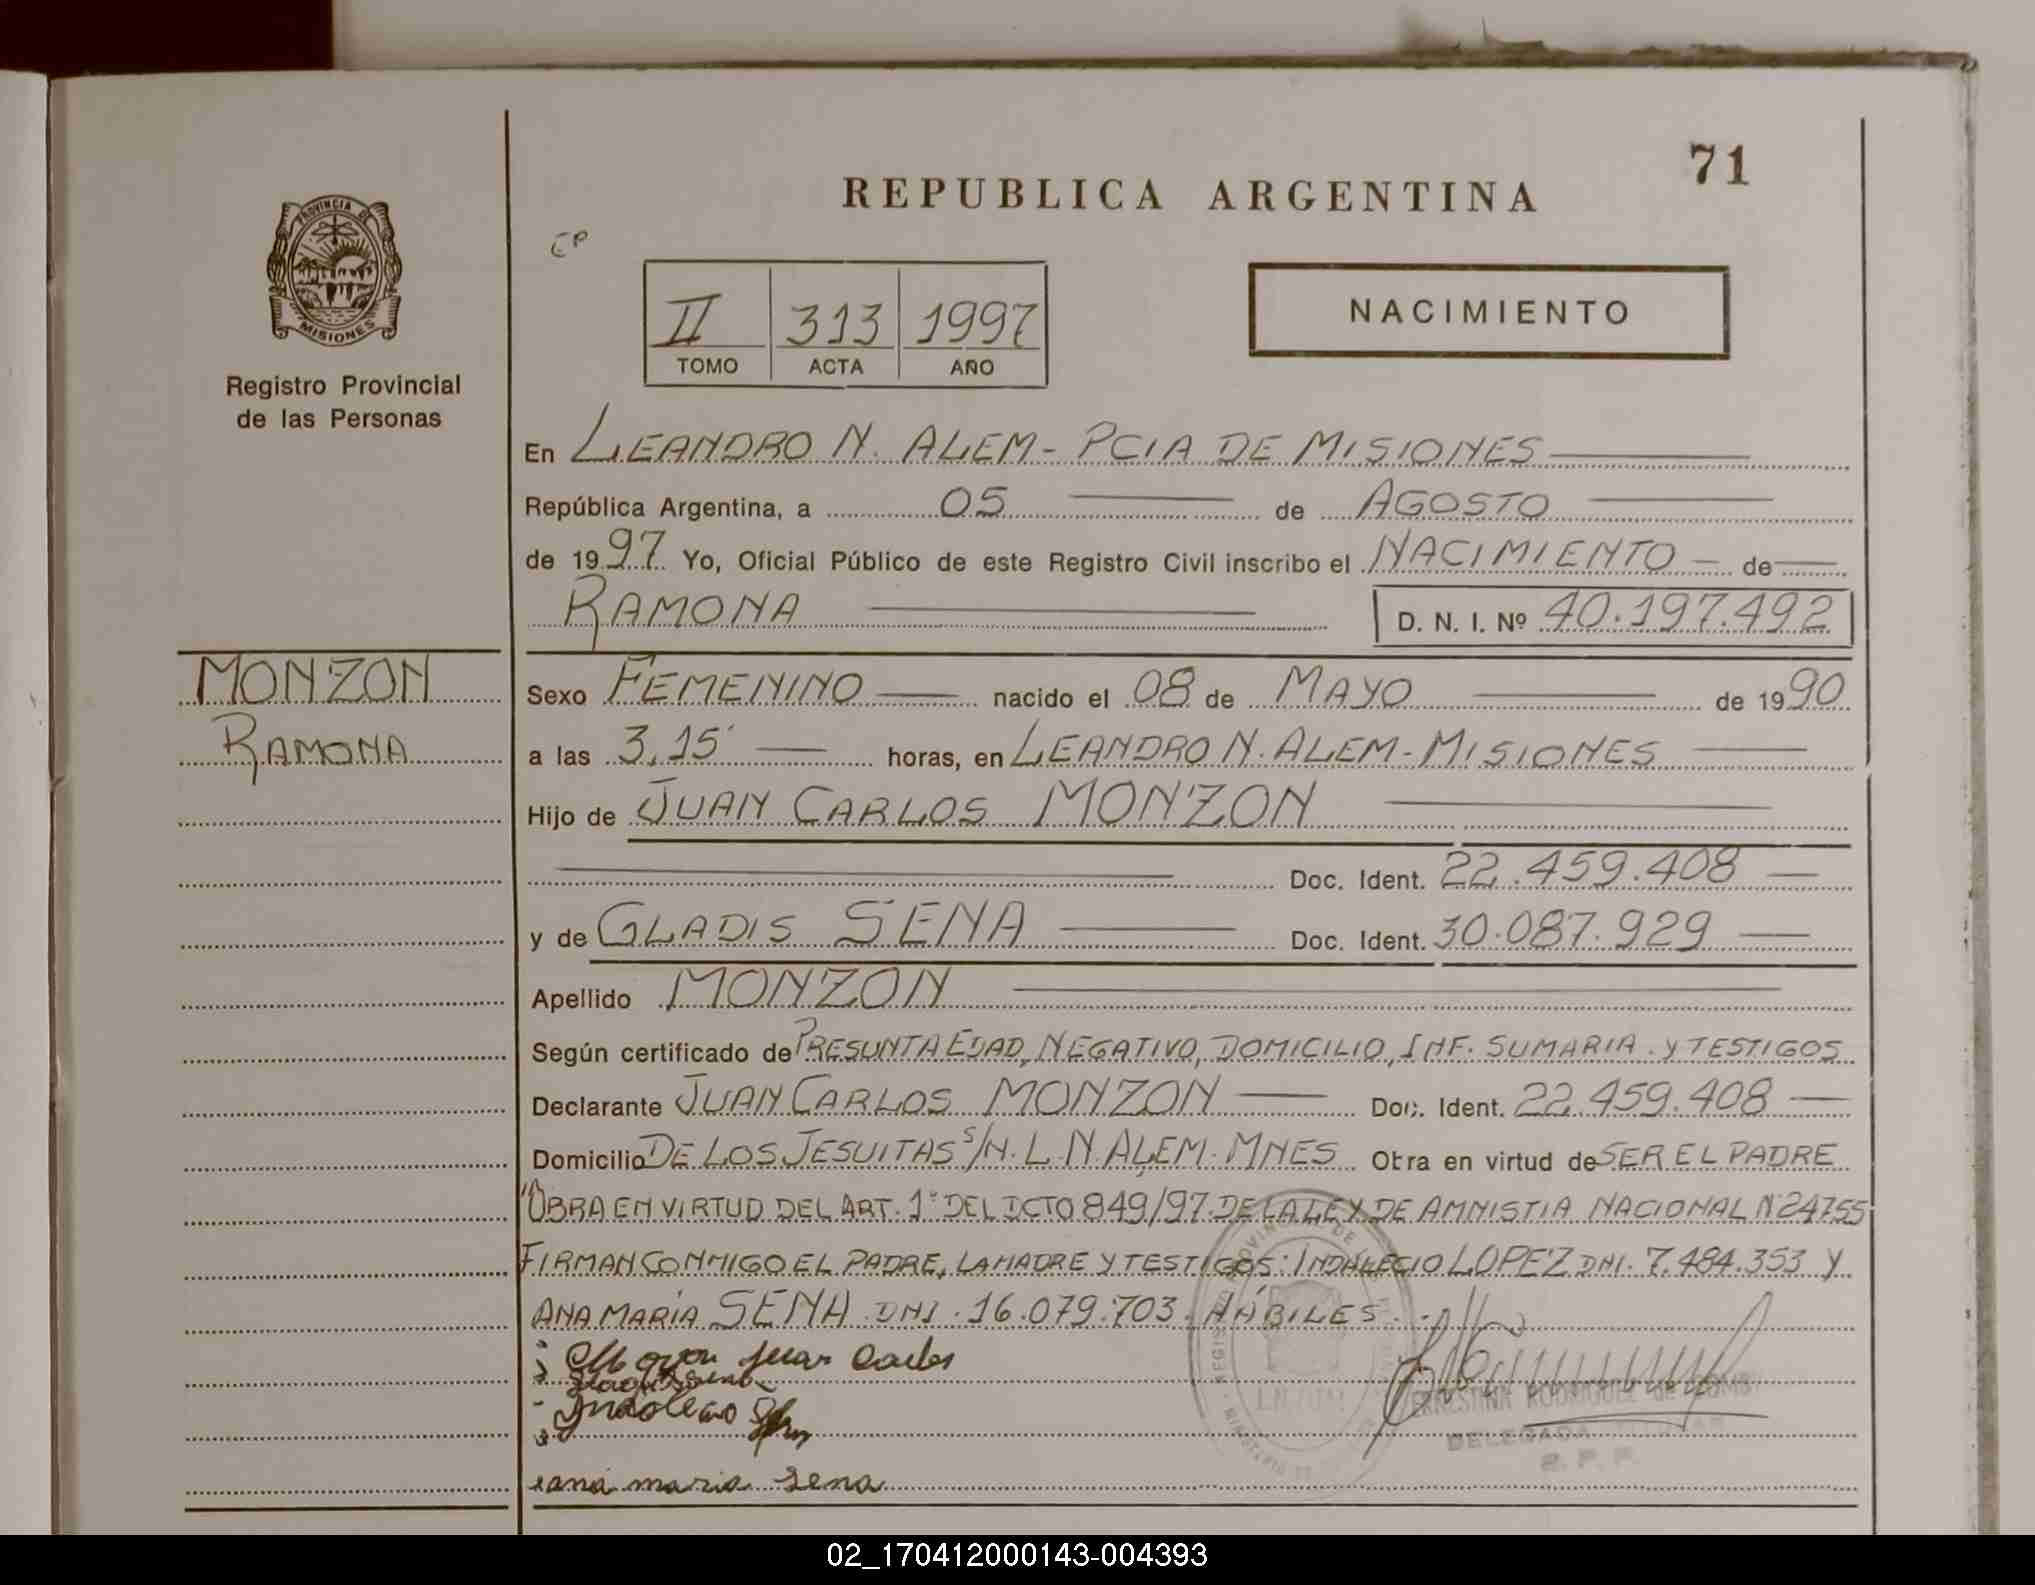 71
REPUBLICA ARGENTINA
PROVINCIA DE
MISIONES
Registro Provincial
de las Personas
CP
II 313 1997
TOMO ACTA AÑO
NACIMIENTO
En LEANDRO N. ALEM - PCIA DE MISIONES
República Argentina, a 05 de AGOSTO
de 1997 Yo, Oficial Público de este Registro Civil inscribo el NACIMIENTO de
RAMONA D. N. I. Nº 40.197.492
MONZON
RAMONA
Sexo FEMENINO nacido el 08 de MAYO de 1990
a las 3,15 horas, en LEANDRO N. ALEM - MISIONES
Hijo de JUAN CARLOS MONZON
Doc. Ident. 22.459.408
y de GLADIS SENA Doc. Ident. 30.087.929
Apellido MONZON
Según certificado de PRESUNTA EDAD, NEGATIVO, DOMICILIO, INF. SUMARIA Y TESTIGOS
Declarante JUAN CARLOS MONZON Doc. Ident. 22.459.408
Domicilio DE LOS JESUITAS S/N. L. N. ALEM. MNES Obra en virtud de SER EL PADRE
OBRA EN VIRTUD DEL ART. 1º DEL DCTO 849/97. DE LA LEY DE AMNISTIA NACIONAL Nº 24755
FIRMAN CONMIGO EL PADRE, LA MADRE Y TESTIGOS: INDALECIO LOPEZ DNI. 7.484.353 Y
ANA MARIA SENA DNI. 16.079.703. HÁBILES.
Juan Carlos
Indalecio
ana maria sena
ERNESTINA RODRIGUEZ de
DELEGADA TITULAR
R. P. P.
02_170412000143-004393